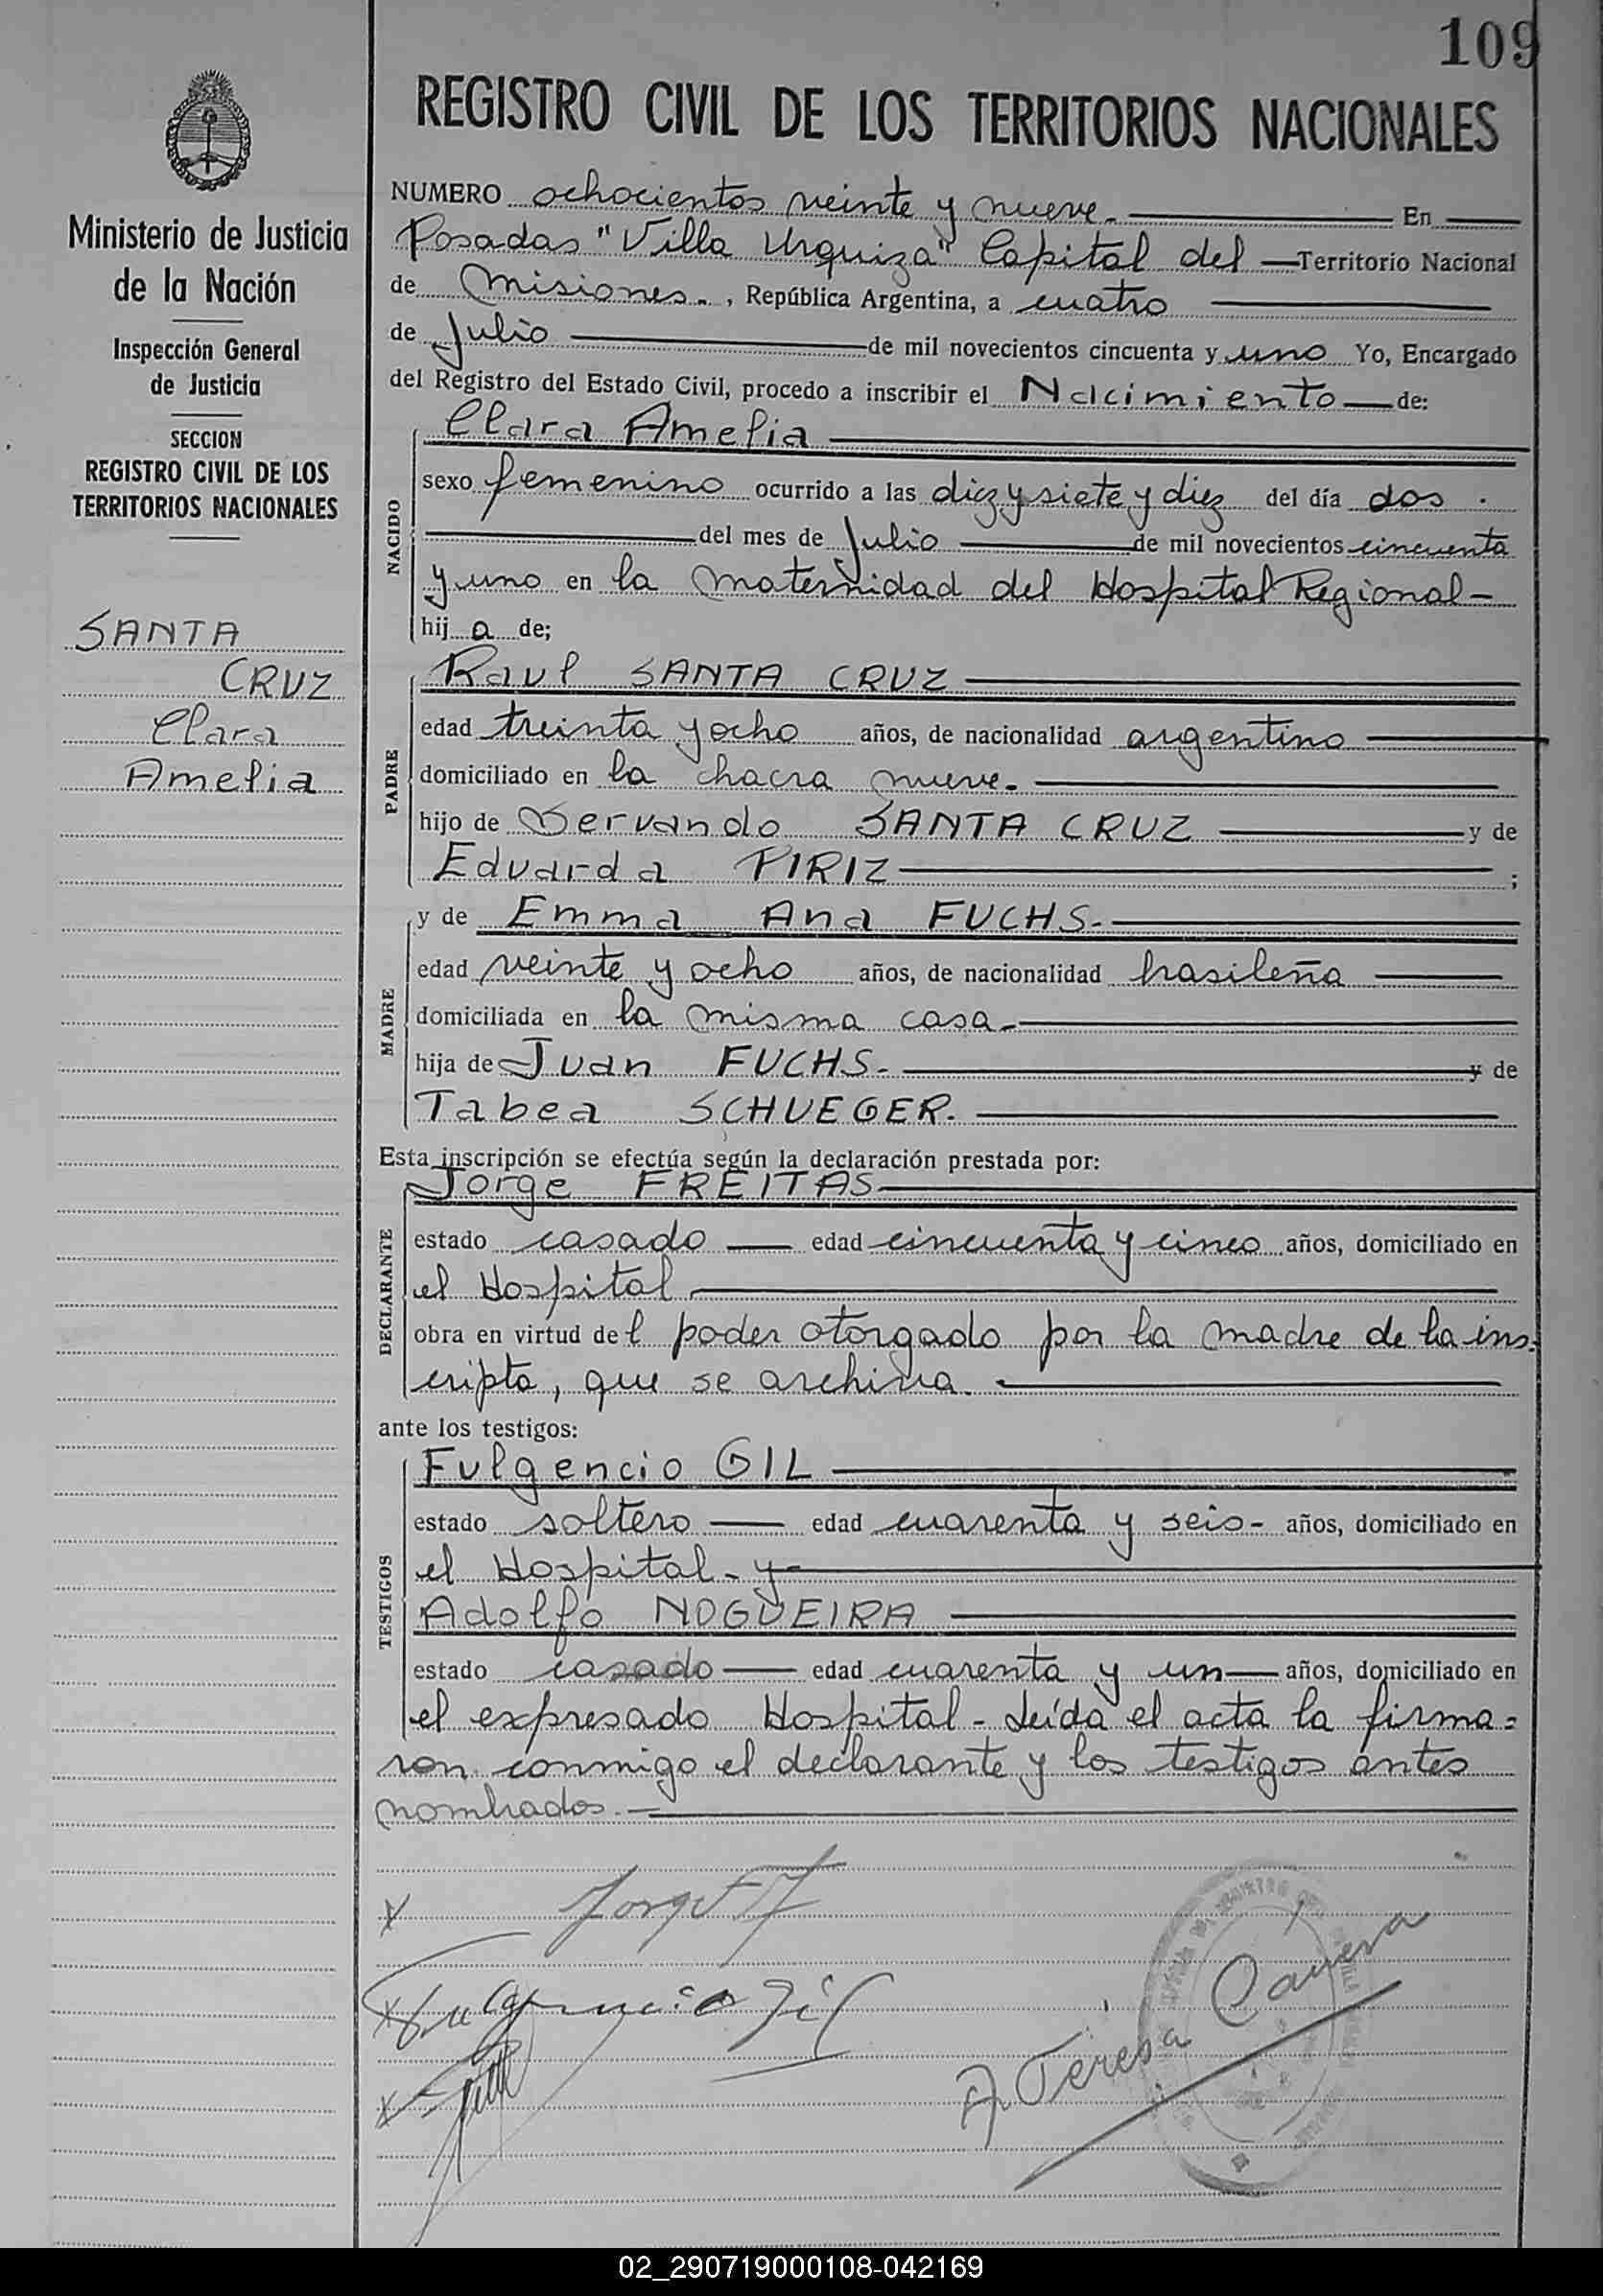 109
REGISTRO CIVIL DE LOS TERRITORIOS NACIONALES
Ministerio de Justicia
de la Nación
Inspección General
de Justicia
SECCION
REGISTRO CIVIL DE LOS
TERRITORIOS NACIONALES
SANTA
CRUZ
Clara
Amelia
NUMERO ochocientos veinte y nueve. En
Posadas "Villa Urquiza" Capital del Territorio Nacional
de Misiones., República Argentina, a cuatro
de Julio de mil novecientos cincuenta y uno Yo, Encargado
del Registro del Estado Civil, procedo a inscribir el Nacimiento de:
NACIDO
Clara Amelia
sexo femenino ocurrido a las diez y siete y diez del día dos.
del mes de Julio de mil novecientos cincuenta
y uno en la maternidad del Hospital Regional-
hij a de;
PADRE
Raul SANTA CRUZ
edad treinta y ocho años, de nacionalidad argentino
domiciliado en la chacra nueve.
hijo de Servando SANTA CRUZ y de
Eduarda PIRIZ ;
MADRE
y de Emma Ana FUCHS.
edad veinte y ocho años, de nacionalidad brasileña
domiciliada en la misma casa.
hija de Juan FUCHS. y de
Tabea SCHUEGER.
Esta inscripción se efectúa según la declaración prestada por:
DECLARANTE
Jorge FREITAS
estado casado edad cincuenta y cinco años, domiciliado en
el Hospital
obra en virtud del poder otorgado por la madre de la ins=
cripta, que se archiva.
ante los testigos:
TESTIGOS
Fulgencio GIL
estado soltero edad cuarenta y seis- años, domiciliado en
el Hospital- y
Adolfo NOGUEIRA
estado casado edad cuarenta y un años, domiciliado en
el expresado Hospital- Leída el acta la firma=
ron conmigo el declarante y los testigos antes
nombrados.
x Jorge F
x Fulgencio Gil
x
A. Teresa Canesa
02_290719000108-042169